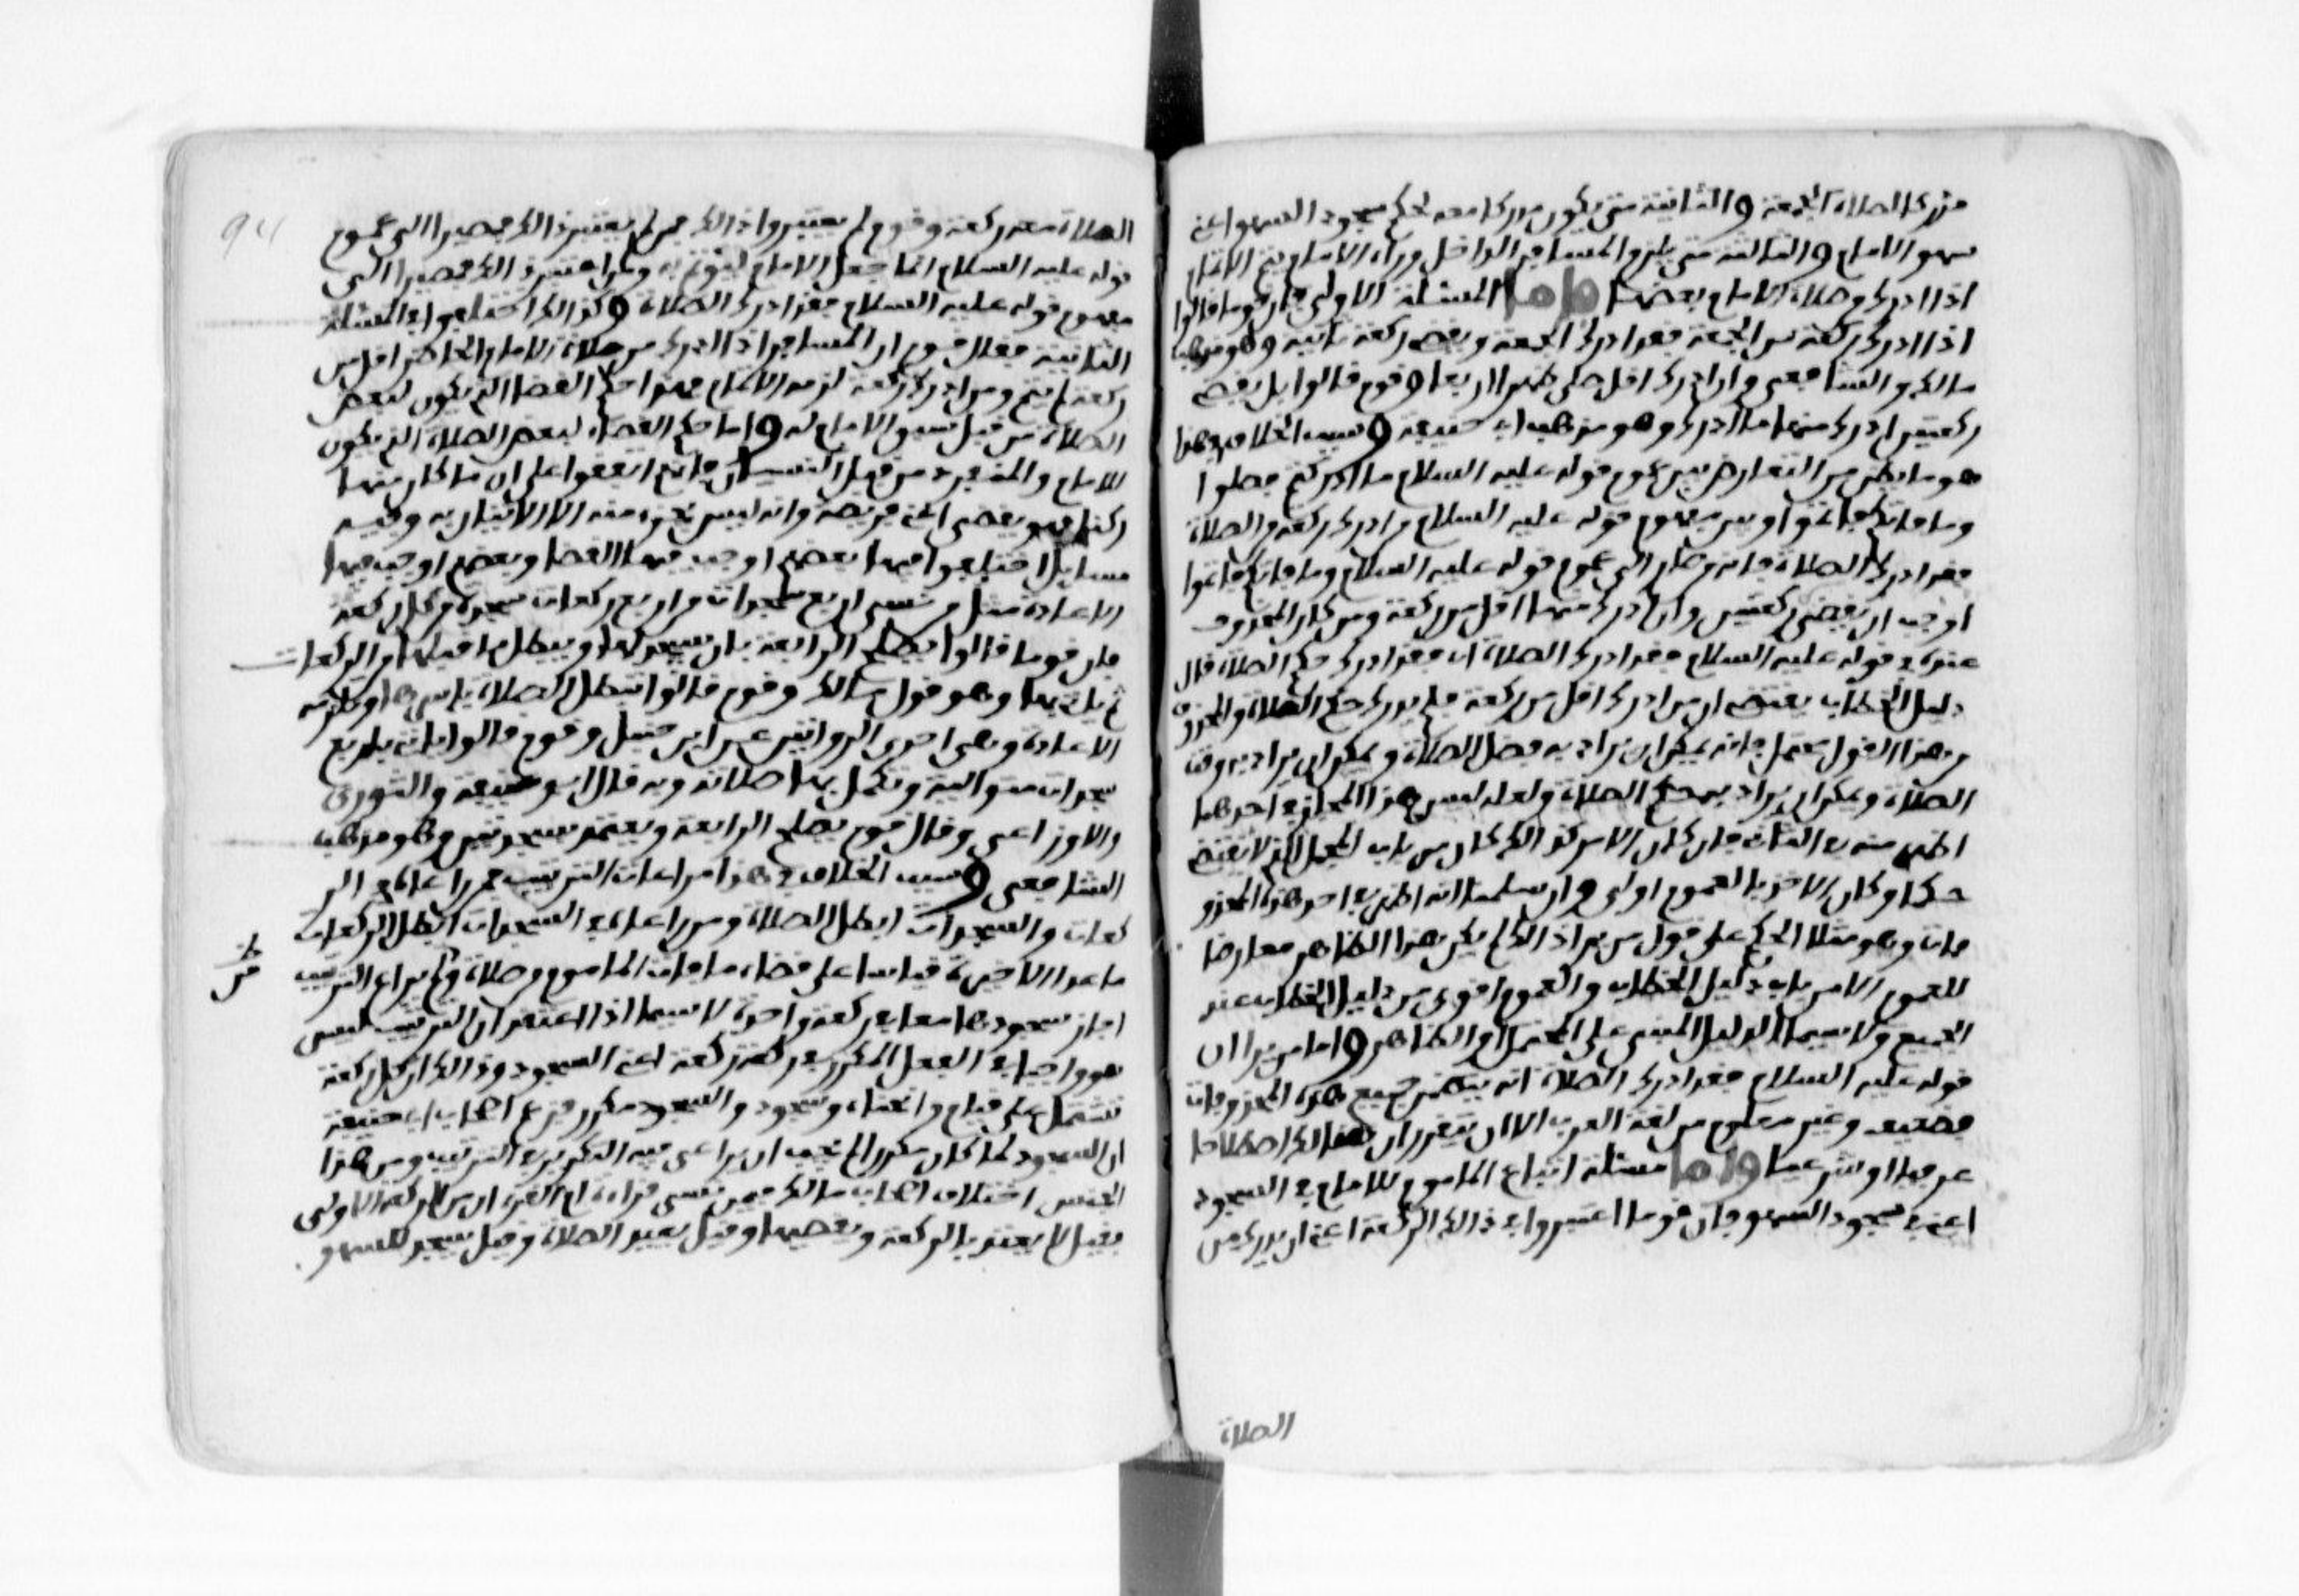 مدركا لصلاة الجمعة والثانية متى يكون مدركا معه لحكم سجود السهو اعني
سهو الامام والثالثة متى يلزم المسافر الداخل وراء الامام يتم الاتمام
اذا ادرك من صلاة الامام بعضها فاما المسئلة الاولى فان قوما قالوا
اذا ادرك ركعة من الجمعة فقد ادرك الجمعة ويقضي ركعة ثانية وهو مذهب
مالك والشافعي وان ادرك اقل صلى ظهرا اربعا وقوم قالوا بل يقضي
ركعتين ادرك منها ما ادرك وهو مذهب ابي حنيفة وسبب الخلاف في هذا
هو ما يظن من التعارض بين عموم قوله عليه السلام ما ادركتم فصلوا
وما فاتكم فاتموا وبين مفهوم قوله عليه السلام من ادرك ركعة من الصلاة
فقد ادرك الصلاة فانه من صار الى عموم قوله عليه السلام وما فاتكم فاتموا
اوجب ان يقضي ركعتين وان ادرك منها اقل من ركعة ومن كان المحذوف
عنده في قوله عليه السلام فقد ادرك الصلاة اي فقد ادرك حكم الصلاة قال
دليل الخطاب يقتضي ان من ادرك اقل من ركعة فلم يدرك حكم الصلاة والمحذوف
في هذا القول محتمل فانه يمكن ان يراد به فضل الصلاة ويمكن ان يراد به وقت
الصلاة ويمكن ان يراد به حكم الصلاة ولعله ليس هذا المجاز في احدهما
اظهر منه في الثاني فان كان الامر كذالك كان من باب المجمل الذي لا يقتضي
حكما وكان الاخذ بالعموم اولى وان سلمنا انه اظهر في احد هذه المحذو
فات وهو مثلا الحكم على قول من يرا ذالك لم يكن هذا الظاهر معارضا
للعموم الا من باب دليل الخطاب والعموم اقوى من دليل الخطاب عند
الجميع ولا سيما الدليل المبني على المحتمل او الظاهر واما من يرا ان
قوله عليه السلام فقد ادرك الصلاة انه يتضمن جميع هذه المحذوفات
فضعيف وغير معلوم من لغة العرب الا ان يتقرر ان هنالك اصطلاحا
عرفيا او شرعيا واما مسئلة اتباع الماموم للامام في السجود
اعني في سجود السهو فان قوما اعتبروا في ذالك الركعة اعني ان يدرك من
الصلاة
الصلاة معه ركعة وقوم لم يعتبروا ذالك فمن لم يعتبر ذالك فمصيرا الى عموم
قوله عليه السلام انما جعل الامام ليؤتم به ومن اعتبر ذالك فمصيرا الى
مفهوم قوله عليه السلام فقد ادرك الصلاة وكذالك اختلفوا في المسئلة
الثانية فقال قوم ان المسافر اذا ادرك من صلاة الامام الحاضر اقل من
ركعة لم يتم ومن ادرك ركعة لزمه الاتمام فهذا حكم القضا الذي يكون لبعض
الصلاة من قبل سبق الامام له واما حكم القضاء لبعض الصلاة الذي يكون
للامام والمنفرد من قبل النسيان فانهم اتفقوا على ان ما كان منها
ركنا فهو يقضى اعني فريضة وانه ليس يجزء منه الا الاتيان به وفيه
مسائل اختلفوا فيها بعضهم اوجب فيها القضا وبعضهم اوجب فيها
الاعادة مثل من نسي اربع سجدات من اربع ركعات سجدة من كل ركعة
فان قوما قالوا يصلح الرابعة بان يسجد لها ويبطل ما قبلها من الركعات
ثم ياتي بها وهو قول مالك وقوم قالوا تبطل الصلاة باسرها وتلزمه
الاعادة وهي احدى الروايتين عن ابن حنبل وقوم قالوا ياتي باربع
سجدات متوالية وتكمل بها صلاته وبه قال ابو حنيفة والثوري
والاوزاعي وقال قوم يصلح الرابعة ويعتد بسجدتين وهو مذهب
الشافعي وسبب الخلاف في هذا مراعات الترتيب فمن راعاه في الر
كعات والسجدات ابطل الصلاة ومن راعاه في السجدات ابطل الركعات
ما عدا الاخيرة قياسا على قضاء ما فات الماموم من صلاة ومن لم يراع الترتيب
اجاز سجودها معا في ركعة واحدة لا سيما اذا اعتقد ان الترتيب ليس
هو واجبا في الفعل المكرر في ركعة ركعة اعني السجود وذالك ان كل ركعة
تشتمل على قيام وانحناء وسجود والسجود مكرر فزعم اصحاب ابي حنيفة
ان السجود لما كان مكررا لم يجب ان يراعى فيه التكرير في الترتيب ومن هذا
الجنس اختلاف اصحاب مالك فيمن نسي قراءة ام القرءان من الركعة الاولى
فقيل لا يعتد بالركعة ويقضيها وقيل يعيد الصلاة وقيل يسجد للسهو